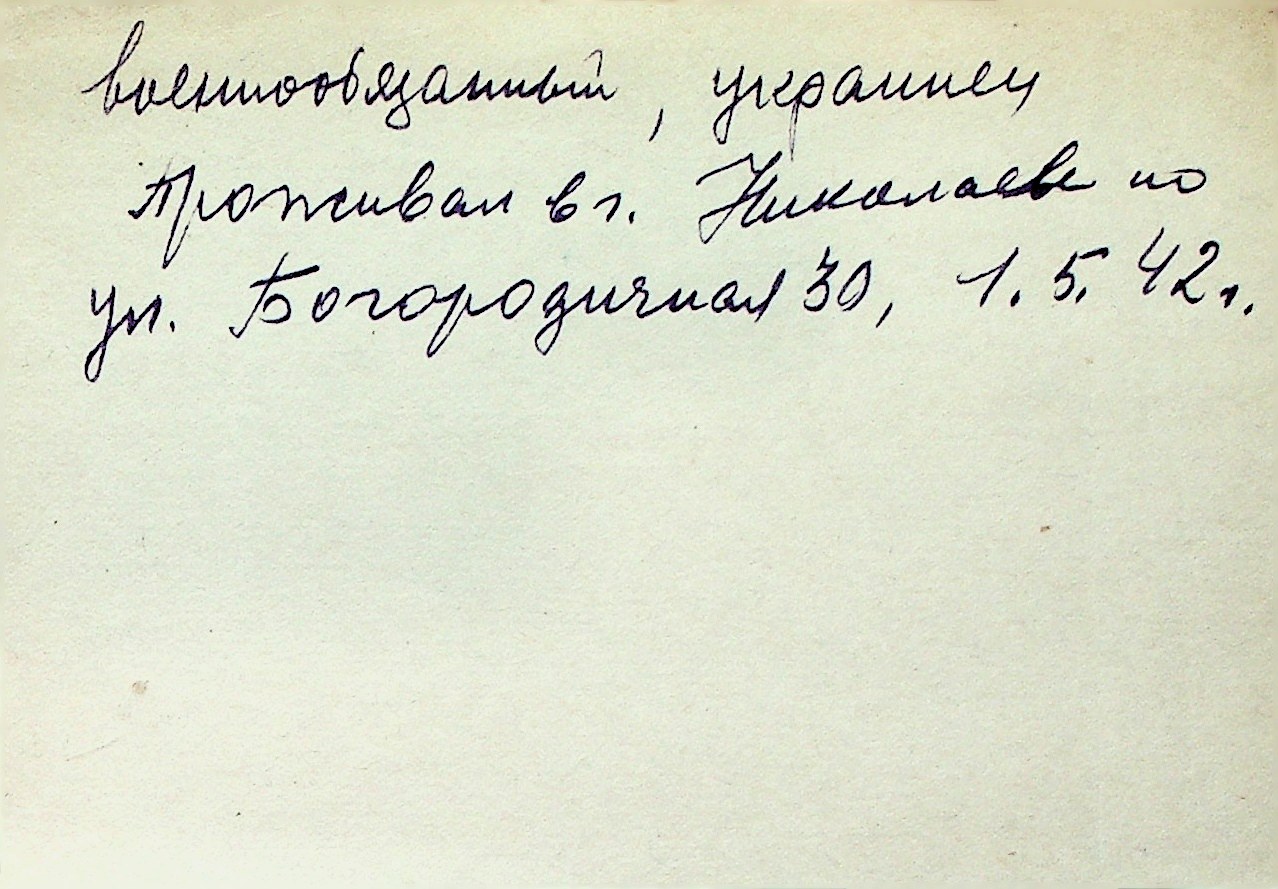 военнообязанный, украинец
проживал в г. Николаеве по
ул. Богородичная 30, 1.5.42г.